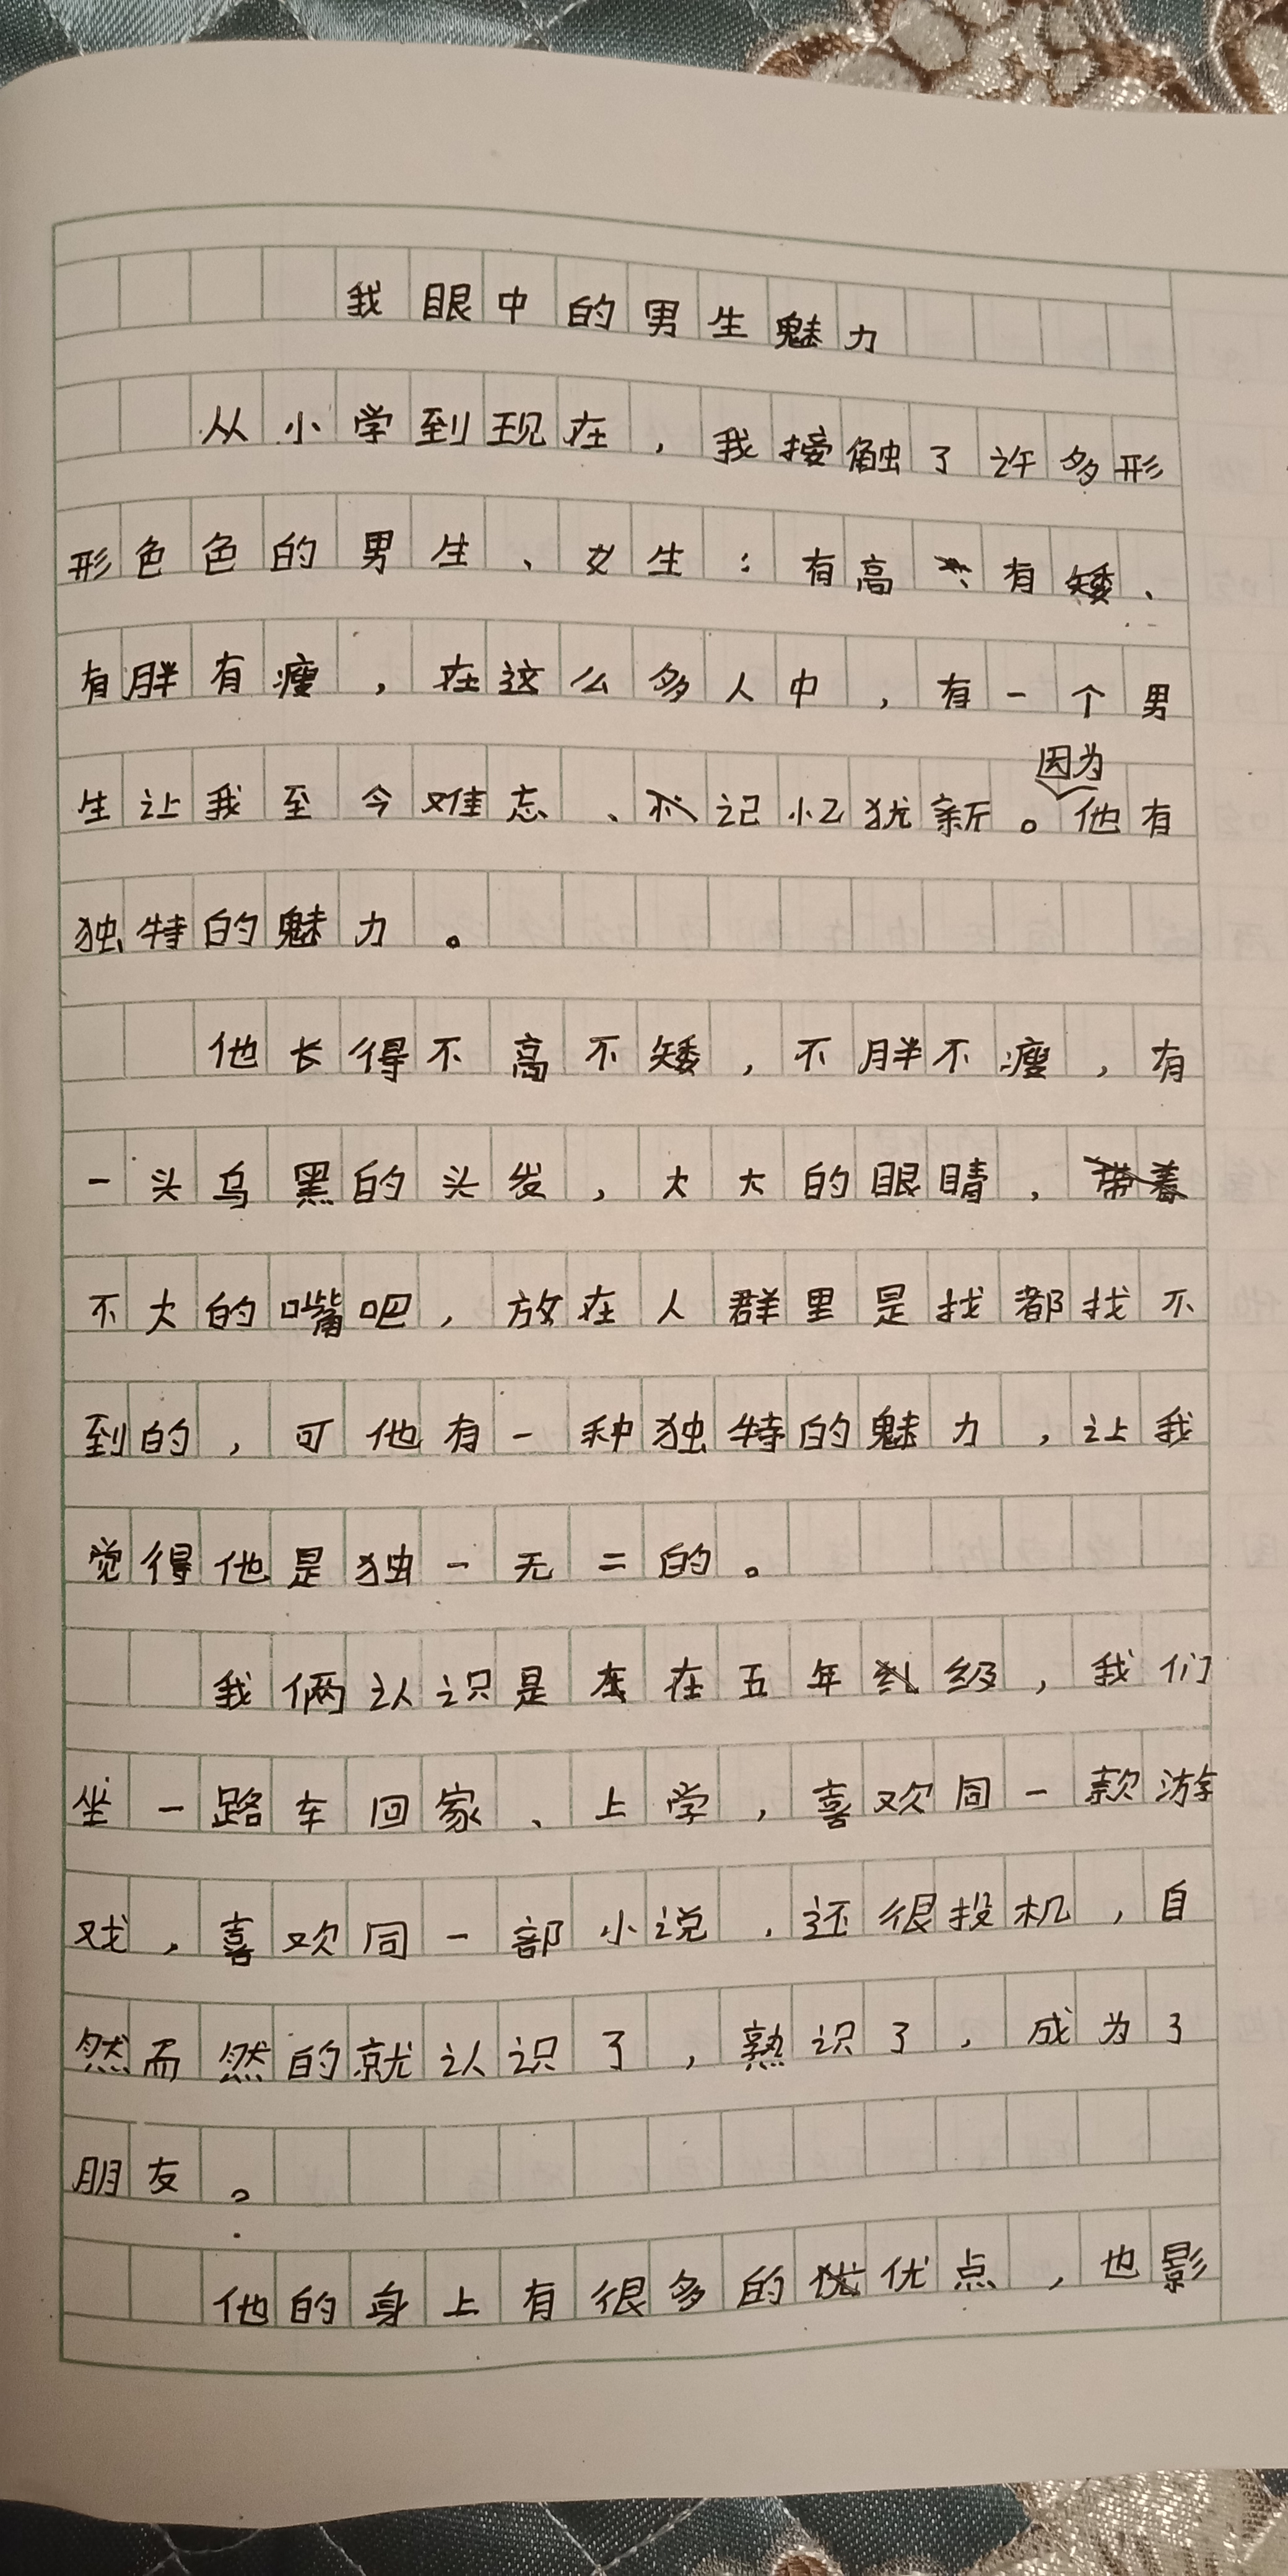 我眼中的男生魅力
从小学到现在，我接触了许多形
形色色的男生、女生：有高有矮、
有胖有瘦，在这么多人中，有一个男
因为
生让我至今难忘、记忆犹新。他有
独特的魅力。
他长得不高不矮，不胖不瘦，有
一头乌黑的头发，大大的眼睛，
不大的嘴吧，放在人群里是找都找不
到的，可他有一种独特的魅力，让我
觉得他是独一无二的。
我俩认识是在五年级，我们
坐一路车回家、上学，喜欢同一款游
戏，喜欢同一部小说，还很投机，自
然而然的就认识了，熟识了，成为了
朋友。
他的身上有很多的优点，也影